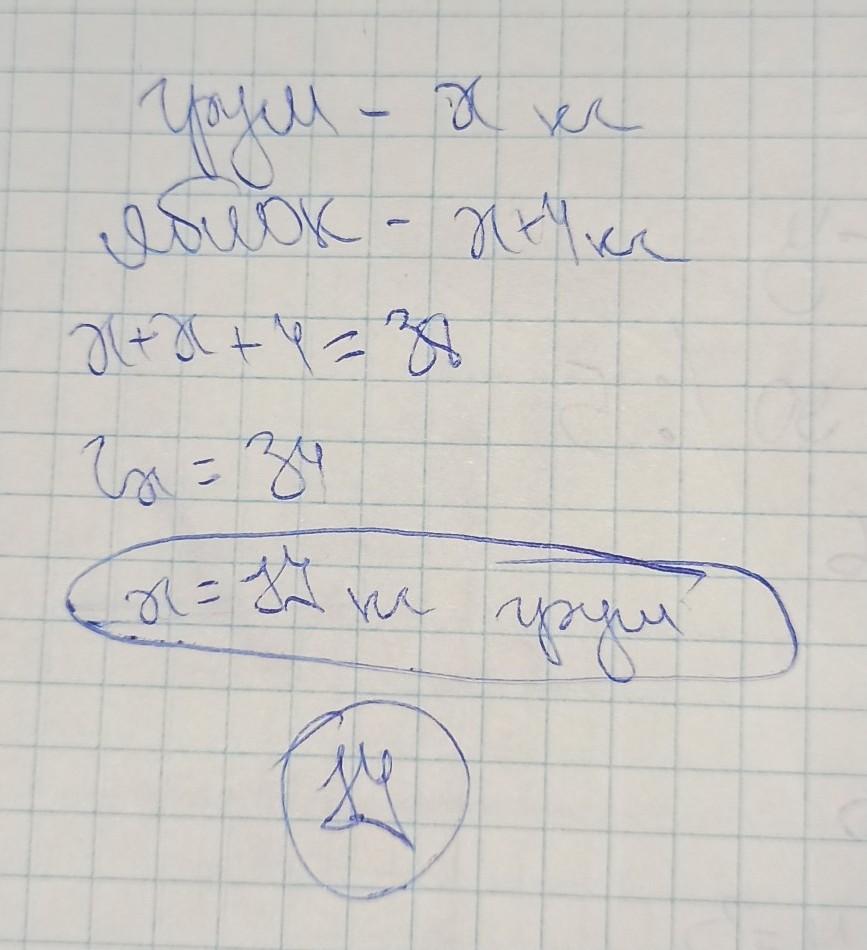 груш - x кг
яблок - x+4 кг
x+x+4=38
2x=34
x=17 кг груш
17